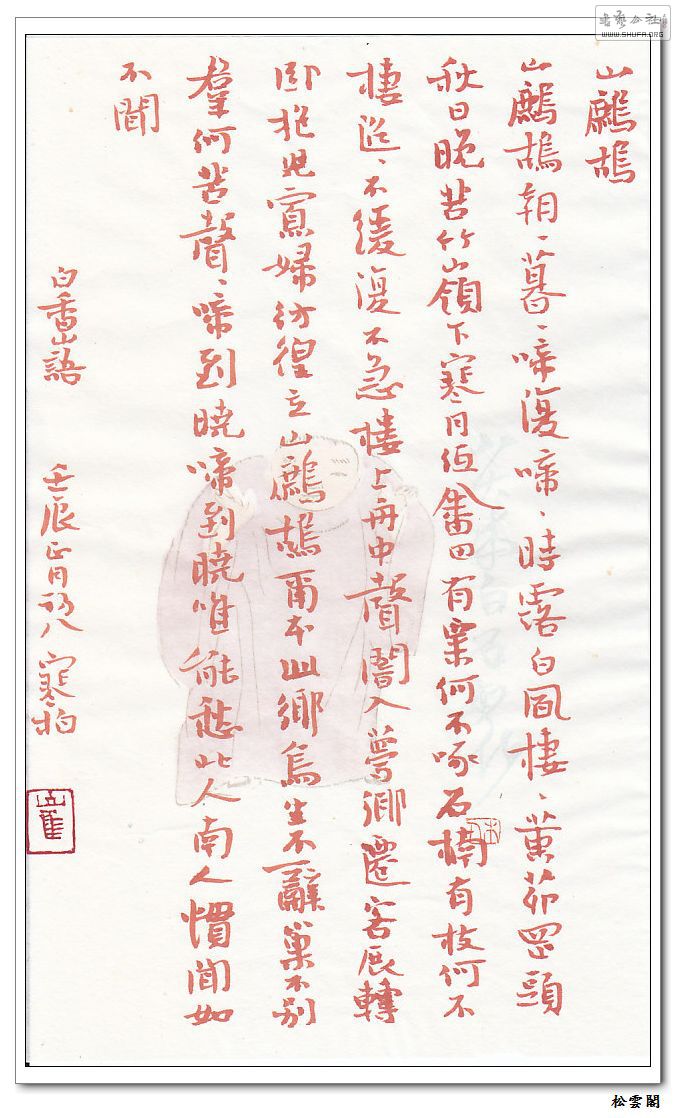 山鷓鴣
山鷓鴣朝、暮、啼復啼、時露白風棲、黃茆罡頭
秋日晚苦竹嶺下寒月低畬田有粟何不啄石楠有枝何不
棲迢、不緩復不急樓上舟中聲闇入夢鄉遷客展轉
卧抱兒寡婦彷徨立山鷓鴣爾本此鄉鳥生不辭巢不別
羣何苦聲、啼到曉啼到曉唯能愁北人南人慣聞如
不聞
白香山語 壬辰正月初八 寒柏
崔
書藝公社
WWW.SHUFA.ORG
松雲閣